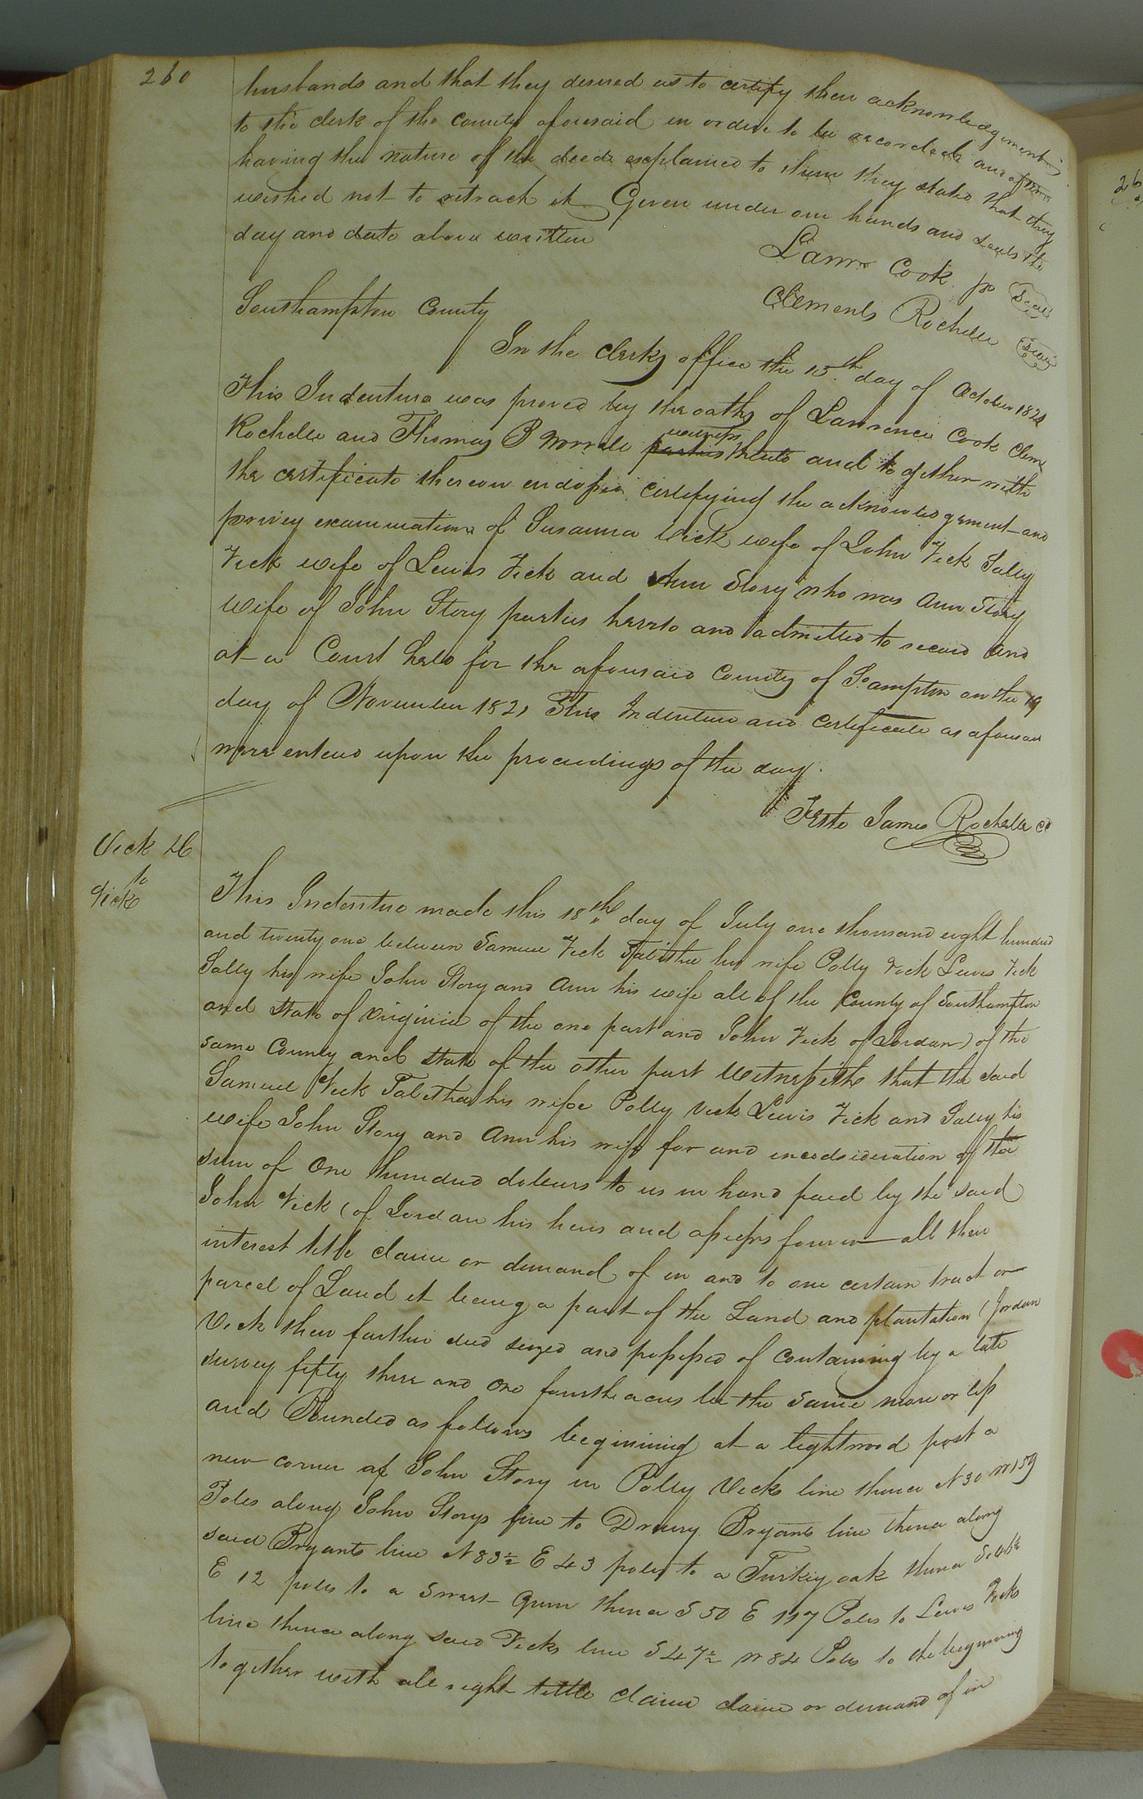 260
husbands and that they desired us to certify their acknowledgements
to the clerk of the county aforesaid in order to be recorded and after
having the nature of the deede explained to them they stated that they
wished not to retract it Given under our hands and seals the
day and date above written
Lawre Cook jr Seal
Clements Rochelle Seal
Southampton County
In the clerks office the 15th day of October 1821
This Indenture was proved by the oaths of Lawrence Cook Clem
Rochelle and Thomas P Worrell
witnesses
parties thereto and together with
the certificate thereon endorsed certifying the acknowledgement and
privey examinations of Susanna Vick wife of John Vick Sally
Vick wife of Lewis Vick and Ann Story who was Ann Story
wife of John Story parties hereto and admitted to record And
at a Court held for the aforesaid County of So ampton on the 19
day of November 1821 This Indenture and certificate as aforesaid
were entered upon the proceedings of the day.
Teste James Rochelle cc
Vick &c
to
Vick
This Indenture made this 18th day of July one thousand eight hundred
and twenty one between Samuel Vick Tabitha his wife Polly Vick Lewis Vick
Sally his wife John Story and Ann his wife all of the County of Southampton
and State of Virginia of the one part and John Vick of Jordan) of the
same County and State of the other part Witnesseth that the said
Samuel Vick Tabitha his wife Polly Vick Lewis Vick and Sally his
wife John Story and Ann his wife for and in consideration of the
sum of One hundred dollars to us in hand paid by the said
John Vick (of Jordan his heirs and assigns forever all their
interest title claim or demand of in and to one certain tract or
parcel of Land it being a part of the Land and plantation (Jordan
Vick their farther died seized and possessed of containing by a late
survey fifty three and one fourth acres be the same more or less
and Bounded as follows beginning at a lightwood post a
new corner of John Story in Polly Vicks line thence N 30 W 159
Poles along John Storys line to Drewry Bryants line thence along
said Bryants line N 83½ E 43 poles to a Turkey oak thence
E 12 poles to a Sweet Gum thence S 50 E 117 Poles to Lewis Vicks
line thence along said Vicks line S 47½ W 84 Poles to the beginning
together with all right tittle claim claim or demand of in